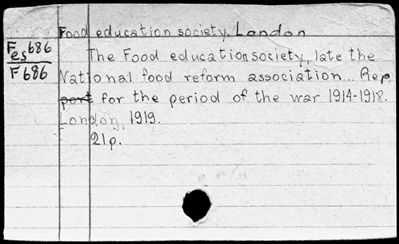 Food education society, London
Fes686
F686
The Food education society, late the
National food reform association... Rep
port for the period of the war 1914-1918.
London, 1919.
21p.